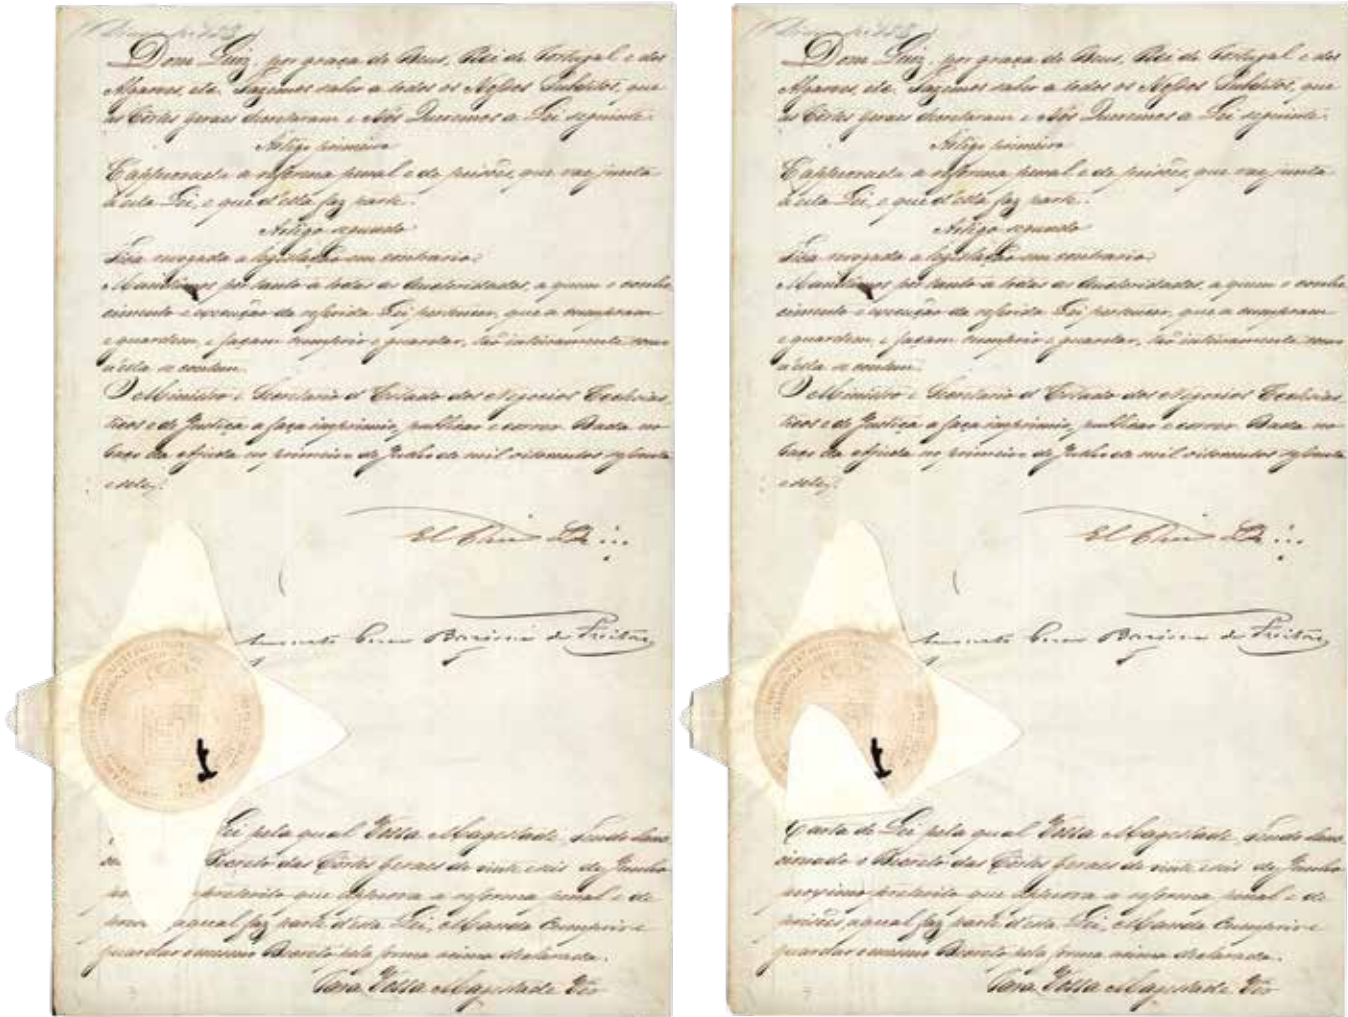 Dom Luiz, por graça de Deus, Rei de Portugal e dos
Algarves, etc. Fazemos saber a todos os Nossos Subditos, que
as Côrtes geraes decretaram e Nós Queremos a Lei seguinte:
Artigo primeiro
É approvada a reforma penal e de prisões, que vae junta
a esta Lei, e que d'esta faz parte.
Artigo segundo
Fica revogada a legislação em contrario.
Mandâmos por tanto a todas as Auctoridades, a quem o conhe
cimento e execução da referida Lei pertencer, que a cumpram
e guardem, e façam cumprir e guardar, tão inteiramente como
n'ella se contem.
O Ministro e Secretario d'Estado dos Negocios Ecclesias
ticos e de Justiça a faça imprimir, publicar e correr. Dada no
Paço da Ajuda no primeiro de Julho de mil oitocentos sessenta
e sete.
El Rei
Barjona de Freitas
Lei pela qual Vossa Magestade, Tendo Sanc
Decreto das Côrtes Geraes de vinte e seis de Junho
preterito que approva a reforma penal e de
a qual faz parte d'esta Lei, Manda Cumprir e
guardar o mesmo Decreto pela forma acima declarada.
Para Vossa Magestade Ver
Dom Luiz, por graça de Deus, Rei de Portugal e dos
Algarves, etc. Fazemos saber a todos os Nossos Subditos, que
as Côrtes geraes decretaram e Nós Queremos a Lei seguinte:
Artigo primeiro
É approvada a reforma penal e de prisões, que vae junta
a esta Lei, e que d'esta faz parte.
Artigo segundo
Fica revogada a legislação em contrario.
Mandâmos por tanto a todas as Auctoridades, a quem o conhe
cimento e execução da referida Lei pertencer, que a cumpram
e guardem, e façam cumprir e guardar, tão inteiramente como
n'ella se contem.
O Ministro e Secretario d'Estado dos Negocios Ecclesias
ticos e de Justiça a faça imprimir, publicar e correr. Dada no
Paço da Ajuda no primeiro de Julho de mil oitocentos sessenta
e sete.
El Rei
Barjona de Freitas
Carta de Lei pela qual Vossa Magestade, Tendo Sanc
cionado o Decreto das Côrtes Geraes de vinte e seis de Junho
proximo preterito que approva a reforma penal e de
prisões a qual faz parte d'esta Lei, Manda Cumprir e
guardar o mesmo Decreto pela forma acima declarada.
Para Vossa Magestade Ver